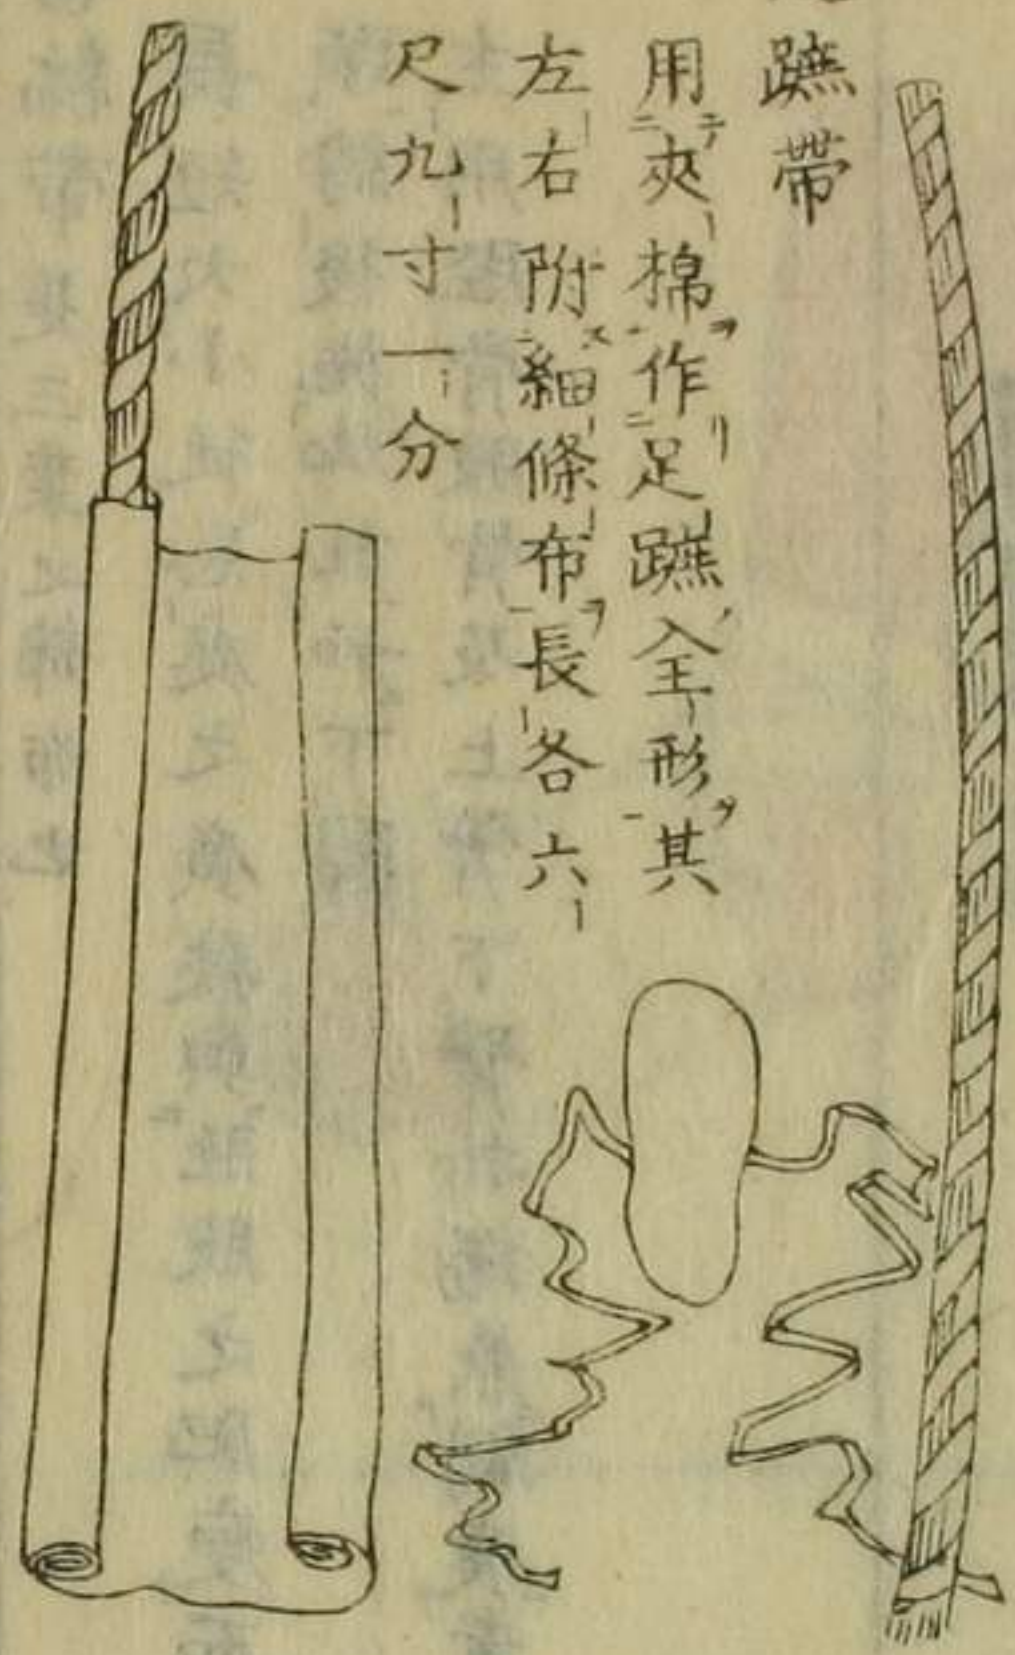 蹠帶
用夾棉作足蹠全形其
左右附細條布長各六
尺九寸一分